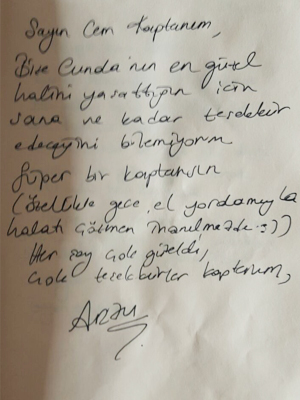 Sayın Cem Kaptanım,
Bize Cunda'nın en güzel
halini yaşattığın için
sana ne kadar teşekkür
edeceğimi bilemiyorum
Süper bir kaptansın
(özellikle gece el yordamıyla
halatı çözmen inanılmazdı :))
Her şey çok güzeldi,
çok teşekkürler kaptanım,
Arzu